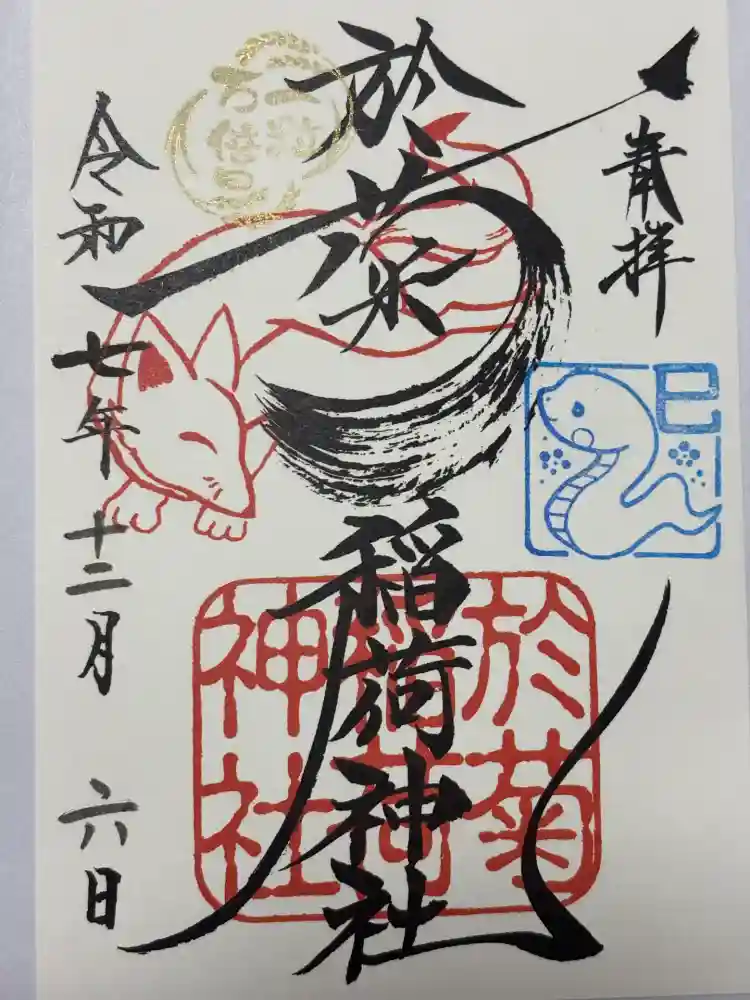 奉拝
巳
於菊稲荷神社
於菊
稲荷
神社
一粒
万倍日
令和七年十二月六日